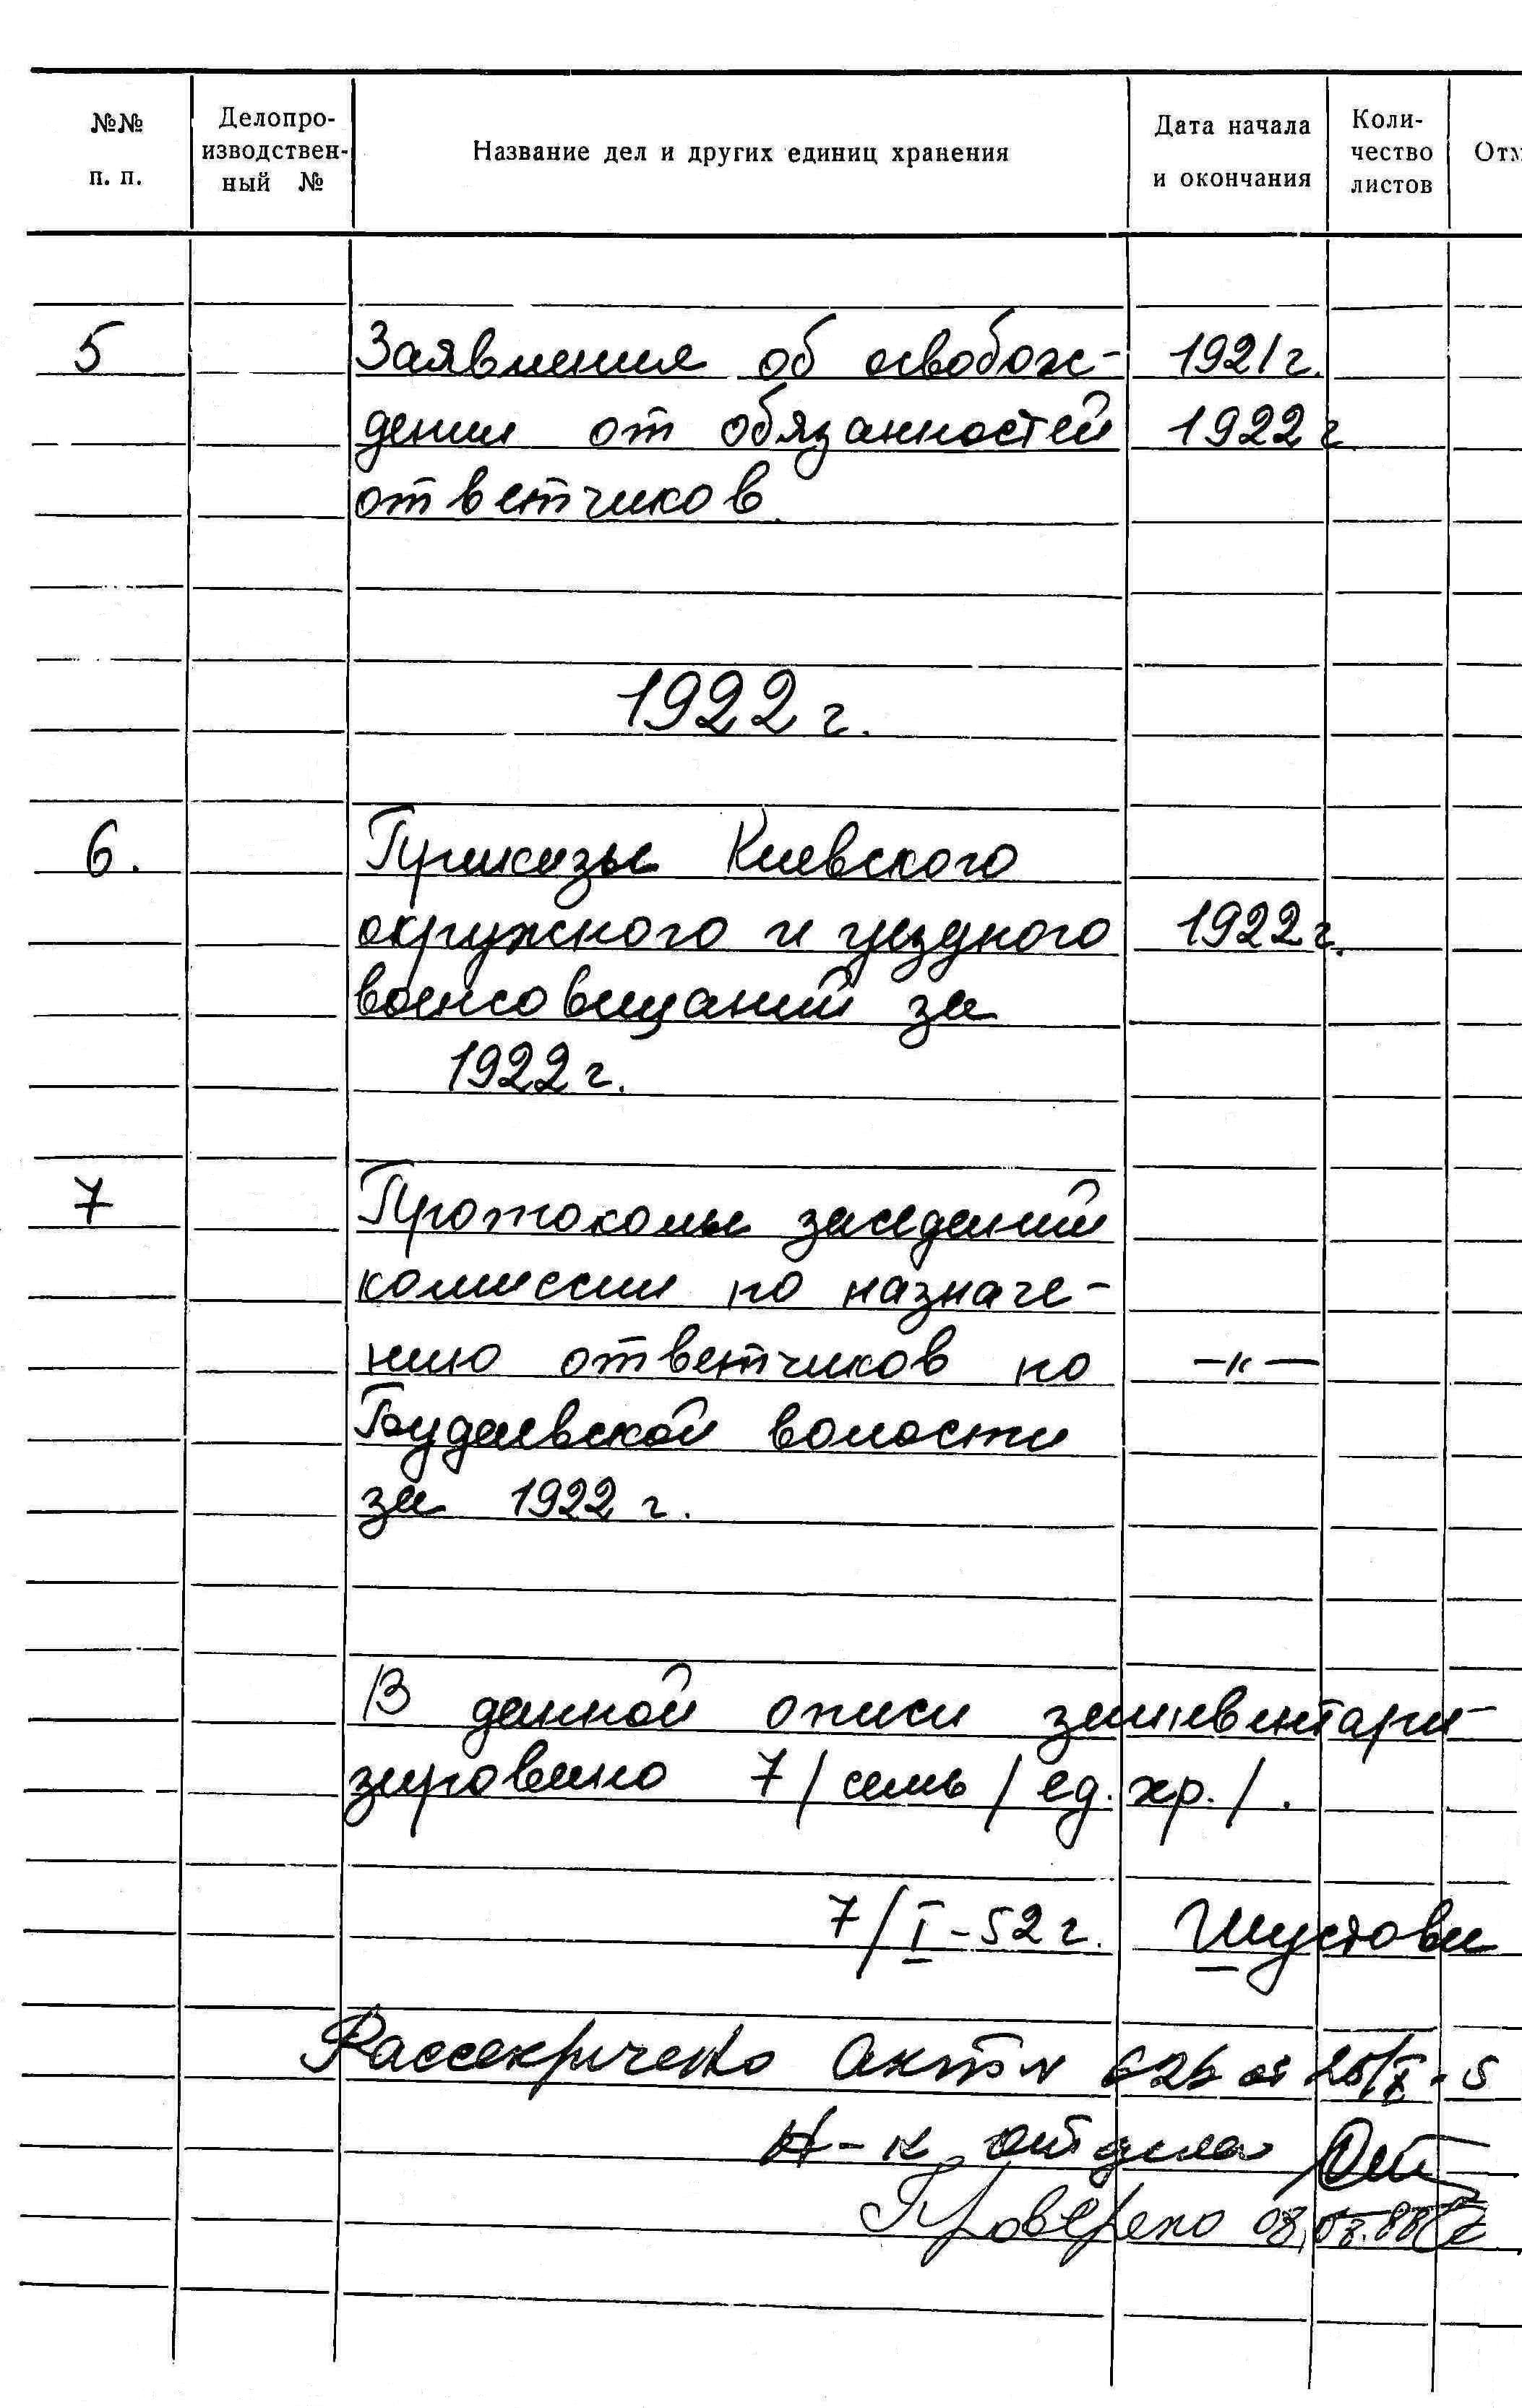 №№ п. п.
Делопро-
изводствен-
ный №
Название дел и других единиц хранения
Дата начала
и окончания
Коли-
чество
листов
Отм
5 Заявления об освобож- 1921 г.
дении от обязанностей 1922 г
ответчиков.
1922 г.
6. Приказы Киевского
окружного и уездного 1922 г.
военсовещаний за
1922 г.
7 Протоколы заседаний
комиссии по назначе-
нию ответчиков по -"-
Будаевской волости
за 1922 г.
В данной описи заинвентари-
зировано 7 /семь/ ед. хр./.
7/I-52 г. Шустова
Рассекречено Актом от
Н-к отдела
Проверено